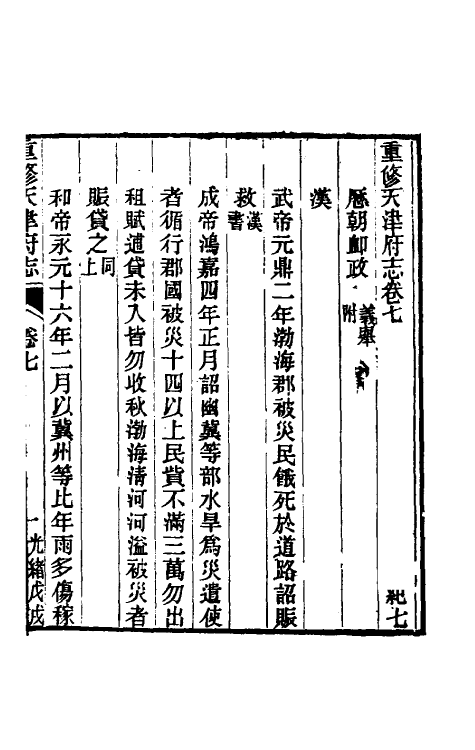 重修天津府志卷七　紀七
歷朝卹政　義舉附
漢
武帝元鼎二年渤海郡被災民餓死於道路詔賑
救漢書
成帝鴻嘉四年正月詔幽冀等部水旱爲災遣使
者循行郡國被災十四以上民貲不滿三萬勿出
租賦逋貸未入皆勿收秋渤海清河河溢被災者
賑貸之同上
和帝永元十六年二月以冀州等比年雨多傷稼
重修天津府志　卷七　一　光緒戊戌